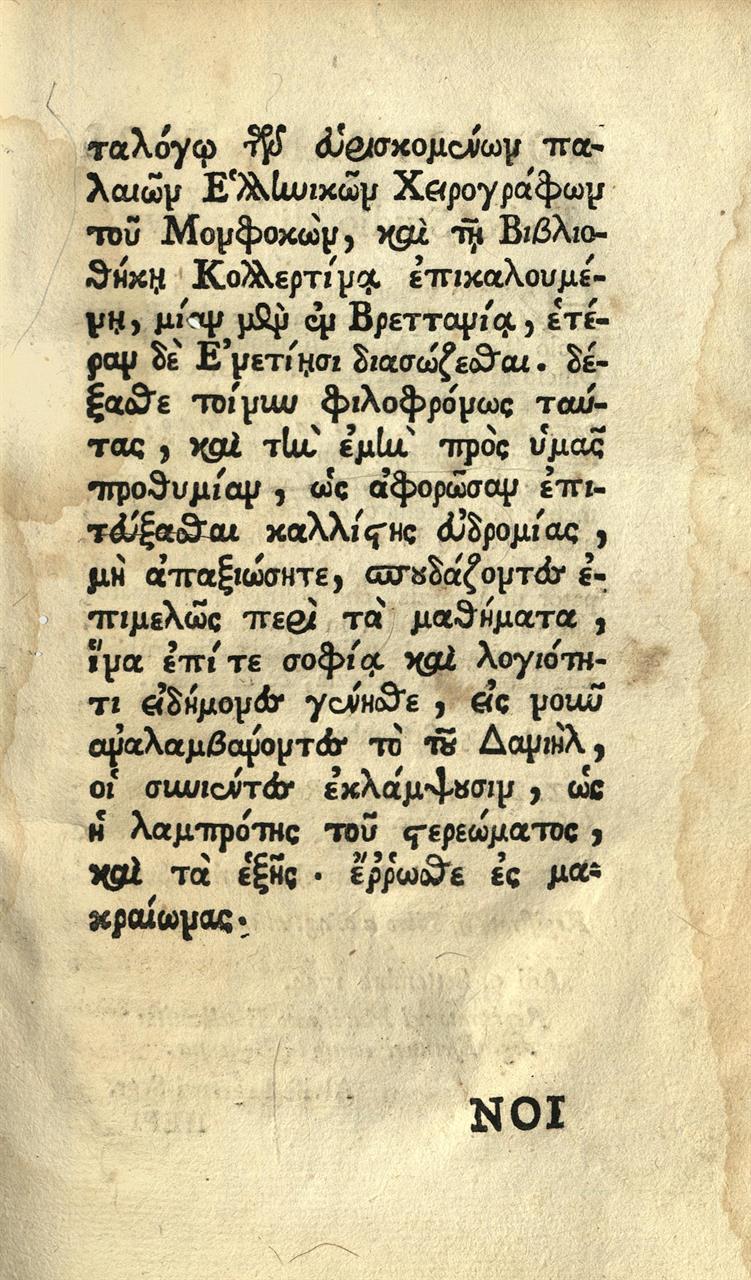 ταλόγῳ τῶν εὑρισκομένων πα-
λαιῶν Ἑλληνικῶν Χειρογράφων
τοῦ Μομφοκὼν, καὶ τῇ Βιβλιο-
θήκῃ Κολλερτίνᾳ ἐπικαλουμέ-
νῃ, μίαν μὲν ἐν Βρεττανίᾳ, ἑτέ-
ραν δὲ Ἐνετίῃσι διασώζεσθαι. δέ-
ξασθε τοίνυν φιλοφρόνως ταύ-
τας, καὶ τὴν ἐμὴν πρὸς ὑμᾶς
προθυμίαν, ὡς ἀφορῶσαν ἐπι-
τεύξασθαι καλλίστης εὐδρομίας,
μὴ ἀπαξιώσητε, σπουδάζοντες ἐ-
πιμελῶς περὶ τὰ μαθήματα,
ἵνα ἐπί τε σοφίᾳ καὶ λογιότη-
τι εἰδήμονες γένησθε, εἰς νοῦν
ἀναλαμβάνοντες τὸ τοῦ Δανιὴλ,
οἱ συνιέντες ἐκλάμψουσιν, ὡς
ἡ λαμπρότης τοῦ στερεώματος,
καὶ τὰ ἑξῆς. ἔῤῥωσθε ἐς μα-
κραίωνας.
ΝΟΙ